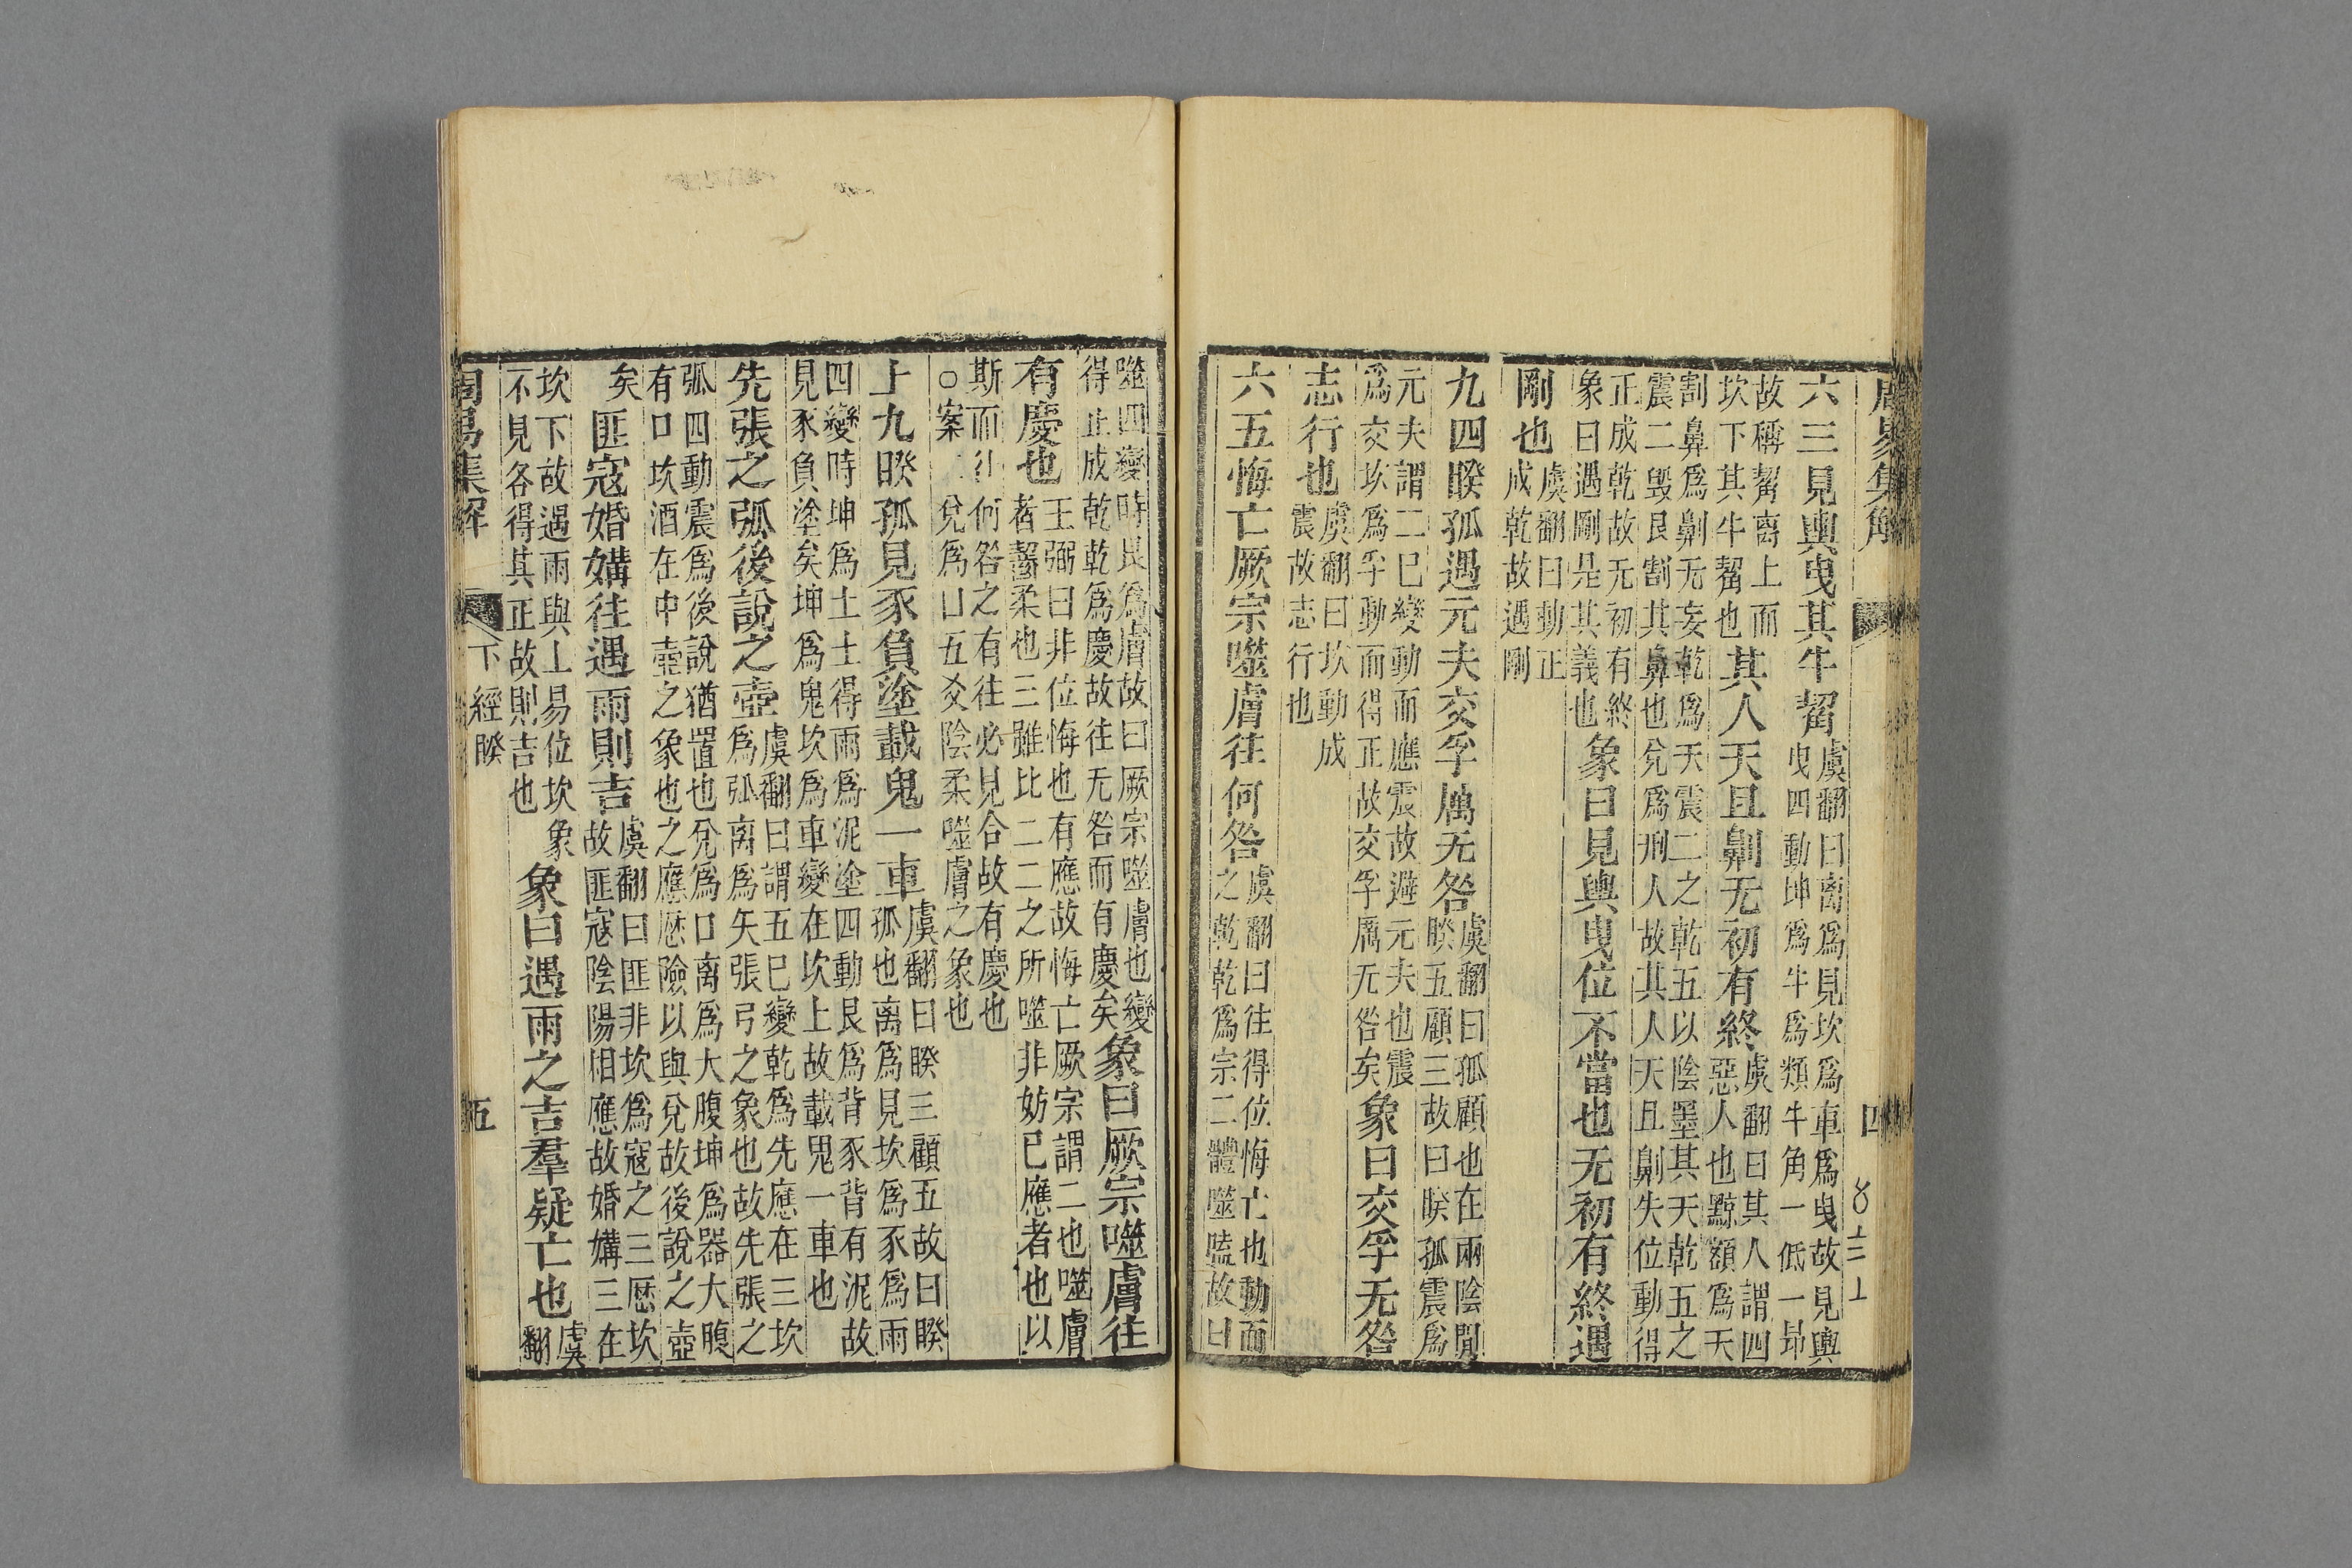 周易集解
四
六三見輿曳其牛觢虞翻曰离爲見坎爲車爲曳故見輿
曳四動坤爲牛爲類牛角一低一昂
故稱觢离上而
坎下其牛觢也其人天且劓无初有終虞翻曰其人謂四
惡人也黥額爲天
割鼻爲劓无妄乾爲天震二之乾五以陰墨其天乾五之
震二毁艮割其鼻也兌爲刑人故其人天且劓失位動得
正成乾故无初有終
象曰遇剛是其義也象曰見輿曳位不當也无初有終遇
剛也虞翻曰動正
成乾故遇剛
九四睽孤遇元夫交孚厲无咎虞翻曰孤顧也在兩陰閒
睽五顧三故曰睽孤震爲
元夫謂二已變動而應震故遊元夫也震
爲交坎爲孚動而得正故交孚厲无咎矣象曰交孚无咎
志行也虞翻曰坎動成
震故志行也
六五悔亡厥宗噬膚往何咎虞翻曰往得位悔亡也動而
之乾乾爲宗二體噬嗑故曰
噬四變時艮爲膚故曰厥宗噬膚也變
得正成乾乾爲慶故往无咎而有慶矣象曰厥宗噬膚往
有慶也王弼曰非位悔也有應故悔亡厥宗謂二也噬膚
者齧柔也三雖比二二之所噬非妨已應者也以
斯而往何咎之有往必見合故有慶也
○案二兌爲口五爻陰柔噬膚之象也
上九睽孤見豕負塗載鬼一車虞翻曰睽三顧五故曰睽
孤也离爲見坎爲豕爲雨
四變時坤爲土土得雨爲泥塗四動艮爲背豕背有泥故
見豕負塗矣坤爲鬼坎爲車變在坎上故載鬼一車也
先張之弧後說之壺虞翻曰謂五已變乾爲先應在三坎
爲弧离爲矢張弓之象也故先張之
弧四動震爲後說猶置也兌爲口离爲大腹坤爲器大腹
有口坎酒在中壺之象也之應歷險以與兌故後說之壺
矣匪寇婚媾往遇雨則吉虞翻曰匪非坎爲寇之三歷坎
故匪寇陰陽相應故婚媾三在
坎下故遇雨與上易位坎象
不見各得其正故則吉也象曰遇雨之吉羣疑亡也虞
翻
周易集解
下經睽
五